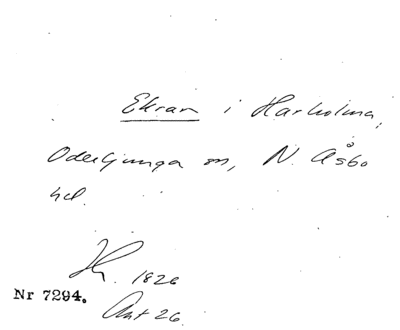 Ekran i Harholma,
Oderljunga sn, N. Åsbo
hd.
1826
Nr 7294.
Ant 26